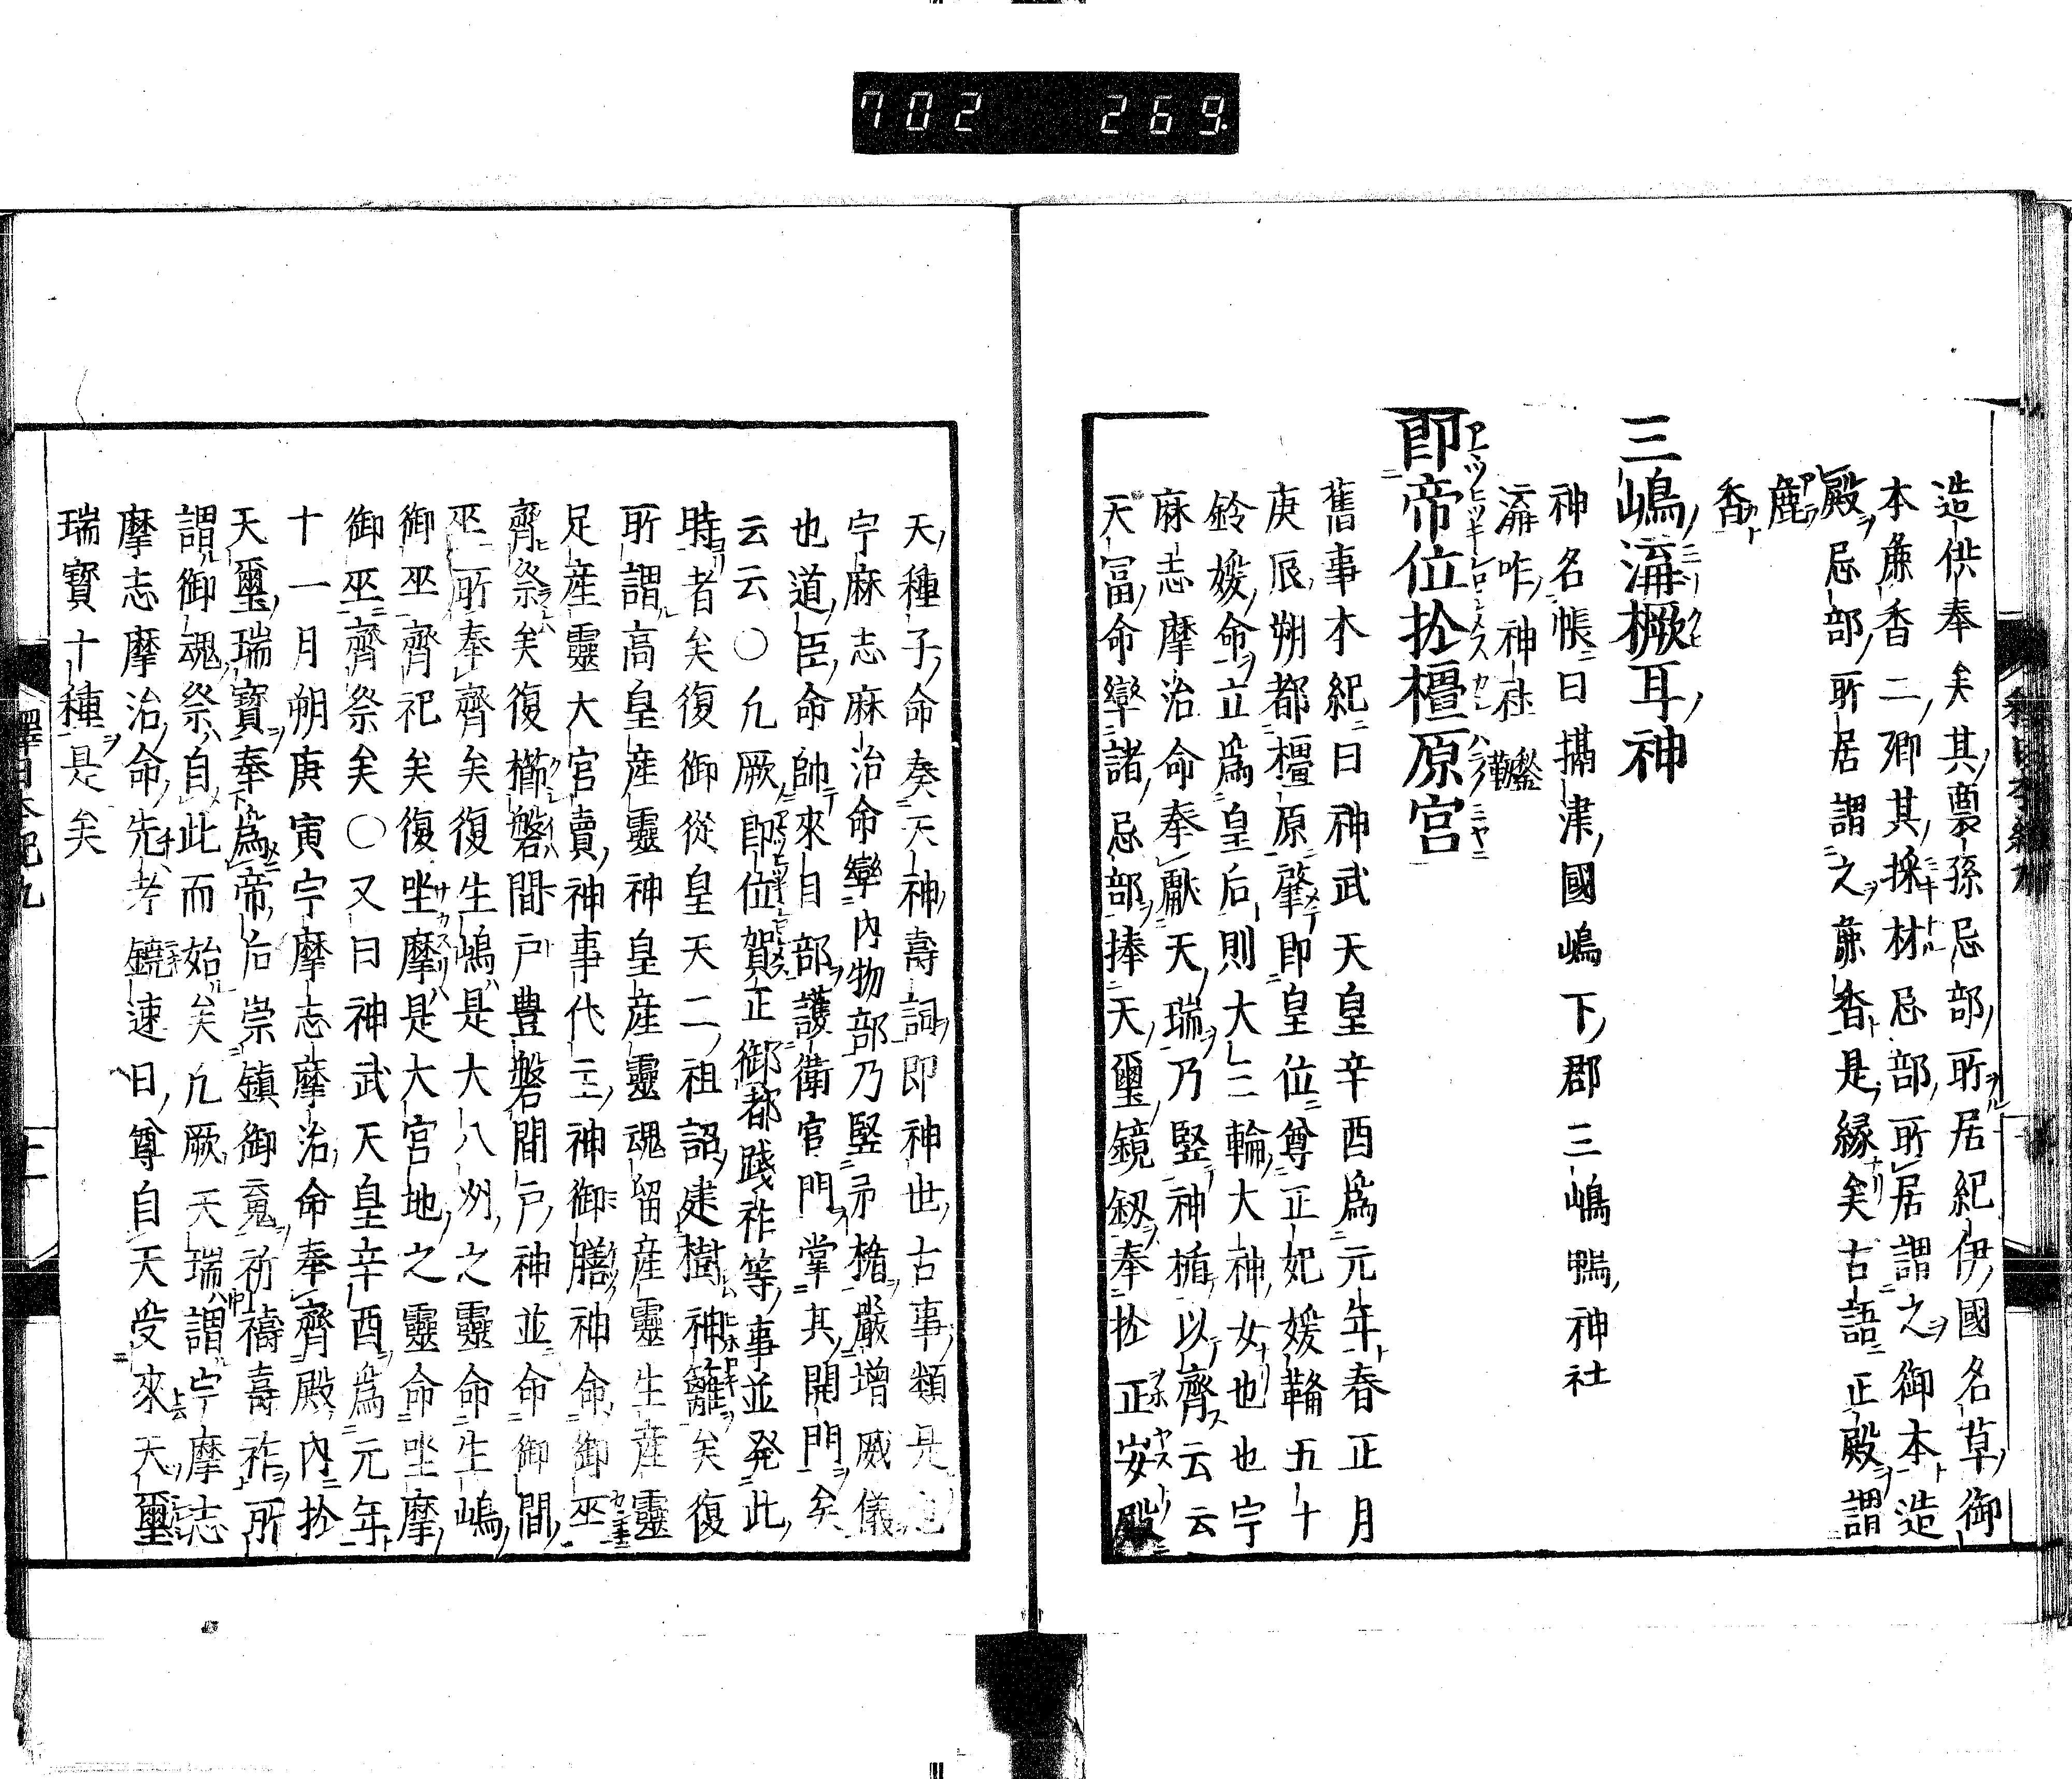 702 269
造供奉矣其裔孫忌部所居紀伊國名草御
本麁香二郷其採材忌部所居謂之御木造
殿忌部所居謂之麁香是縁矣古語正殿謂
麁
香
三嶋溝橛耳神
神名帳曰攝津國嶋下郡三嶋鴨神社
溝咋神社 鍬靫
即帝位於橿原宮
舊事本紀曰神武天皇辛酉爲元年春正月
庚辰朔都橿原肇即皇位尊正妃媛鞴五十
鈴媛命立爲皇后則大三輪大神女也也宇
麻志摩治命奉獻天瑞乃竪神楯以齊云云
天冨命率諸忌部捧天璽鏡釼奉於正安殿
天種子命奏天神壽詞即神世古事類是也
宇麻志麻治命率内物部乃竪矛楯嚴增威儀
也道臣命帥來目部護衛官門掌其開門矣
云云〇凢厥即位賀正御都踐祚等事並発此
時者矣復御從皇天二祖詔建樹神籬矣復
所謂高皇産靈神皇産靈魂留産靈生産靈
足産靈大宮賣神事代主神御膳神命御巫
齊祭矣復櫛磐間戸豊磐間戸神並命御間
巫所奉齊矣復生嶋是大八州之靈命生嶋
御巫齊祀矣復坐摩是大宮地之靈命坐摩
御巫齊祭矣〇又曰神武天皇辛酉爲元年
十一月朔庚寅宇摩志摩治命奉齊殿内於
天璽瑞寳奉爲帝后崇鎮御䰟祈禱壽祚所
謂御魂祭自此而始矣凢厥天瑞謂宇摩志
摩志摩治命先考饒速日尊自天受來天璽
瑞寳十種是矣
釋日本紀九